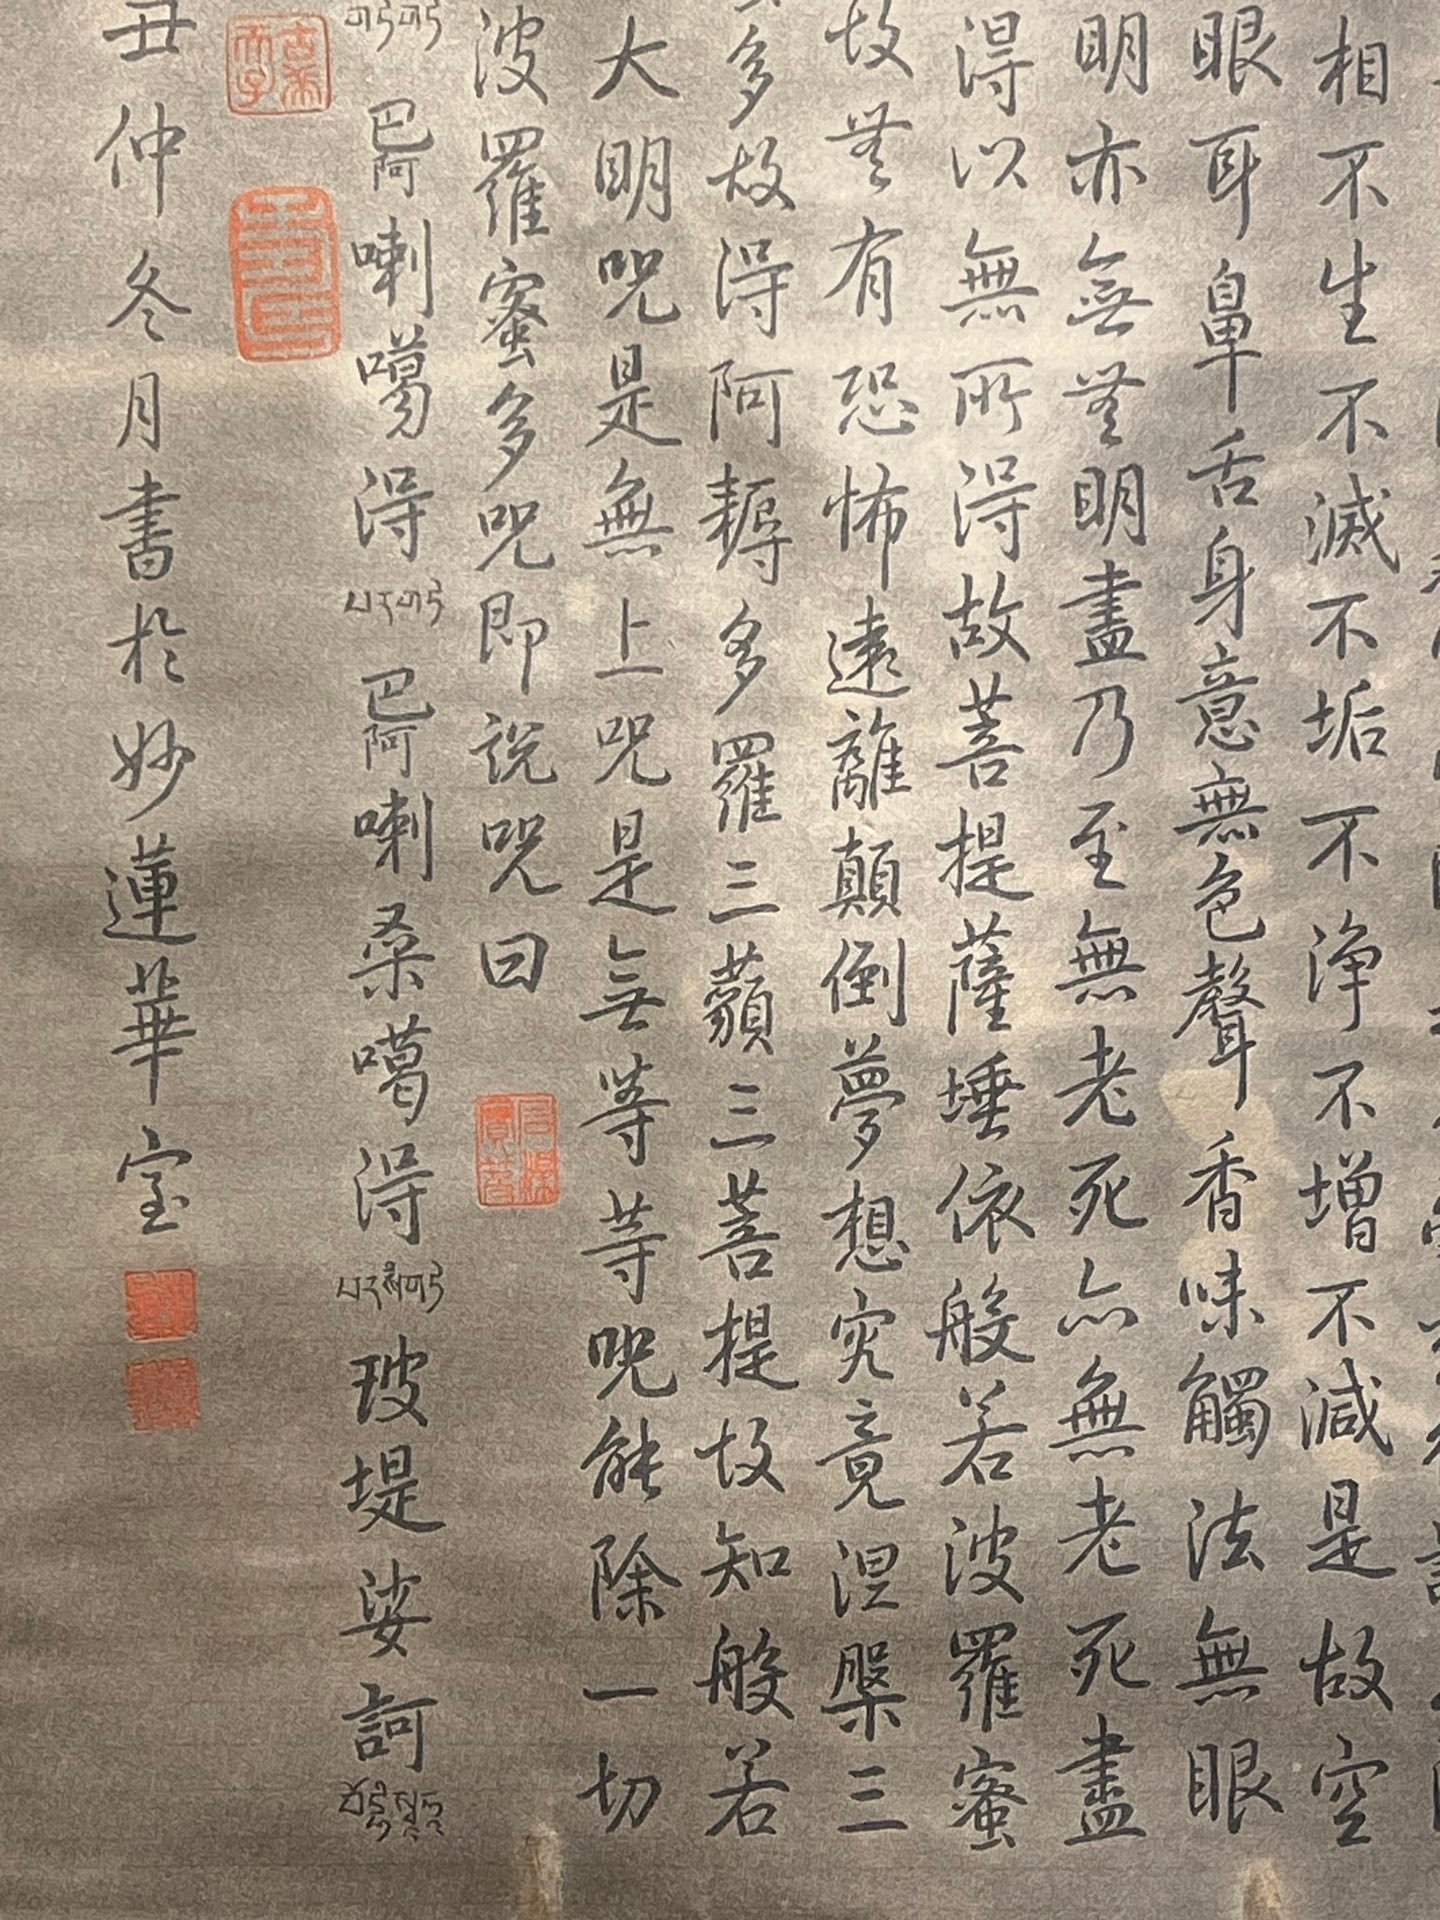 相不生不滅不垢不淨不增不減是故空
眼耳鼻舌身意無色聲香味觸法無眼
明亦無無明盡乃至無老死亦無老死盡
得以無所得故菩提薩埵依般若波羅蜜
故無有恐怖遠離顛倒夢想究竟涅槃三
多故得阿耨多羅三藐三菩提故知般若
大明咒是無上咒是無等等咒能除一切
波羅蜜多咒即說咒曰
ག༌ཏེ་ག༌ཏེ 巴阿喇噶得 པ་ར་ག་ཏེ 巴阿喇桑噶得 པ་ར་སཾ་ག་ཏེ 玻堤娑訶
丑仲冬月書於妙蓮華室